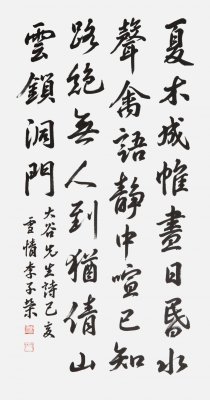 夏木成帷晝日昏水
聲禽語靜中喧已知
路絶無人到猶倩山
雲鎖洞門
大谷先生詩己亥
雪情李子榮